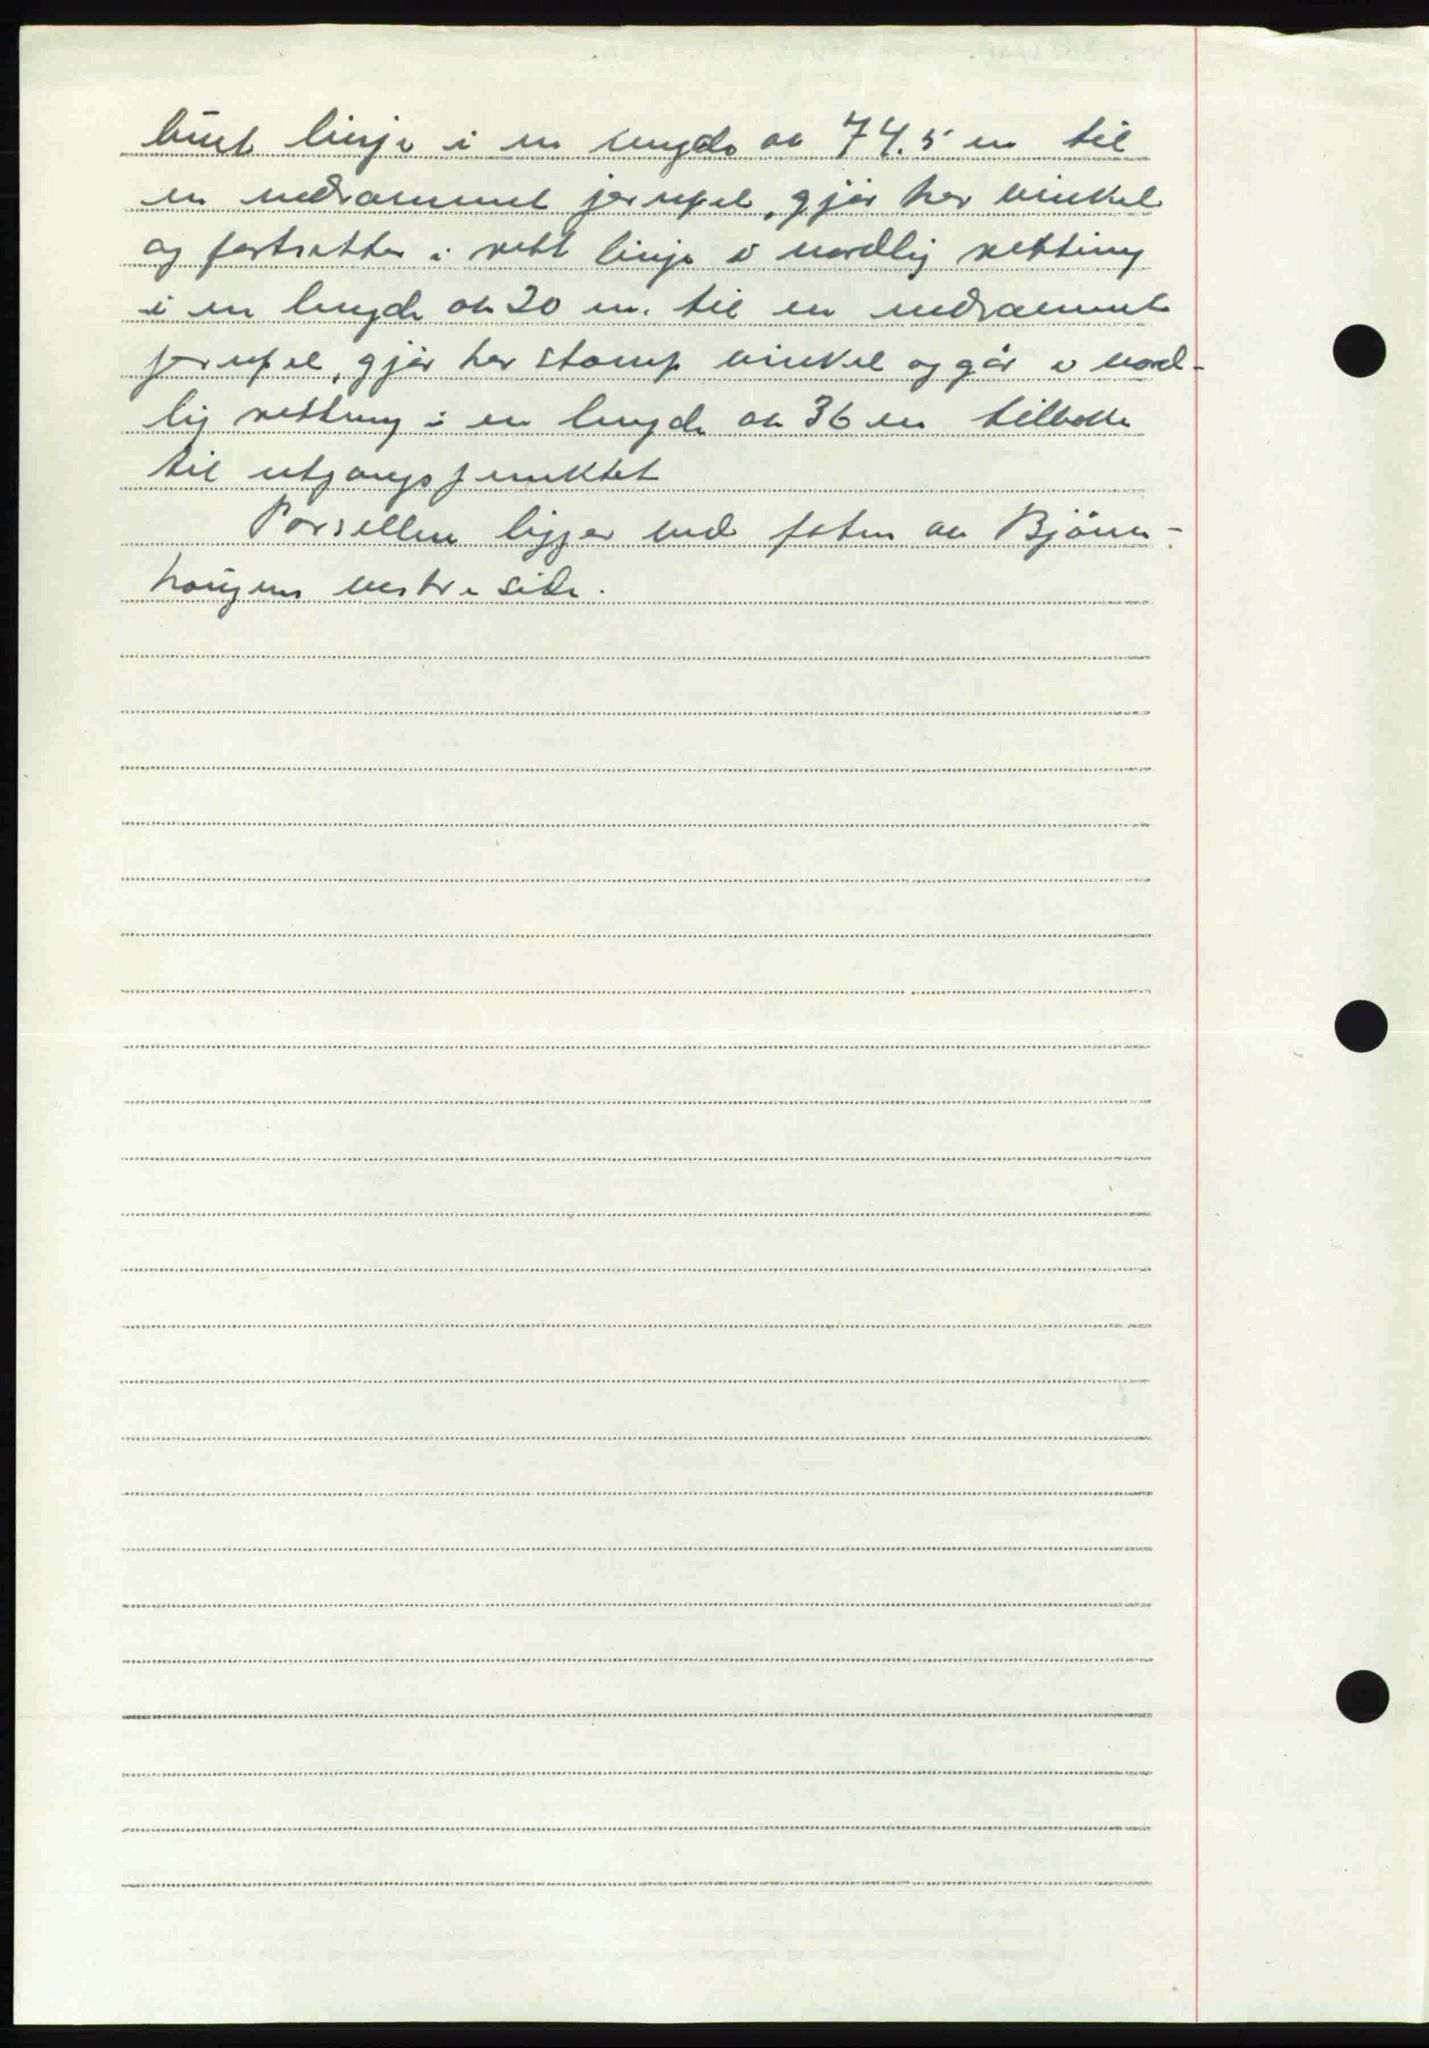 buet linje i en lengde av 74.5 m til
en nedrammet jernpel, gjör her vinkel
og fortsetter i rett linje i nordlig retting
i en lengde av 20 m. til en nedrammet
jernpel, gjör her stomp vinkel og går i nord-
lig retning i en lengde av 36 m tilbake
til utgangspunktet
Parsellen ligger ved foten av Björn-
haugens vestre side.